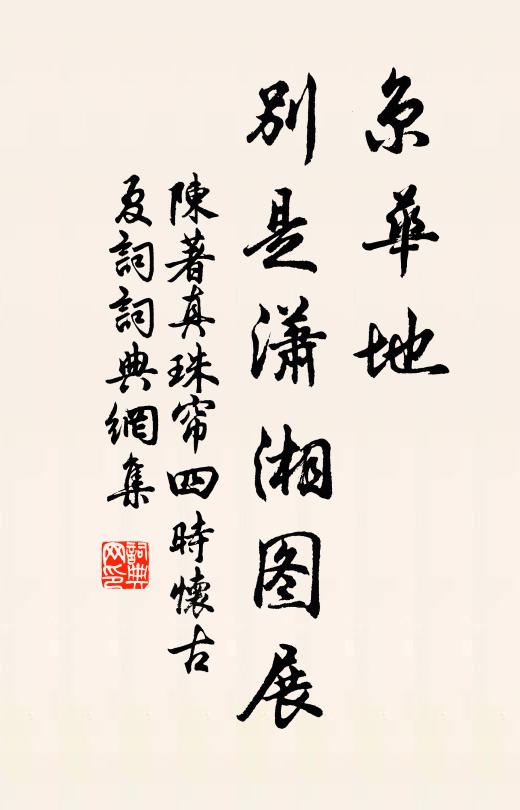 京華地
別是瀟湘图展
陳著真珠帘四時懷古
夏詞詞典網集
詞典网印